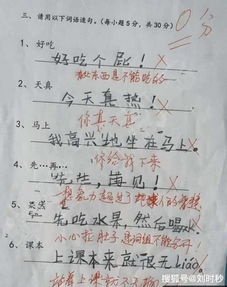 三、请用以下词语造句。（每小题5分，共30分）
0分
1、好吃
好吃个屁！
这东西是不能吃的
2、天真
今天真热！
你真天真
3、马上
我高兴地坐在马上。
你给我下来
4、先…再…
先生，再见！
5、果然
先吃水果，然后喝水
小心拉肚子
6、课本
上课本来就很无liáo
搜狐号@刘时秒